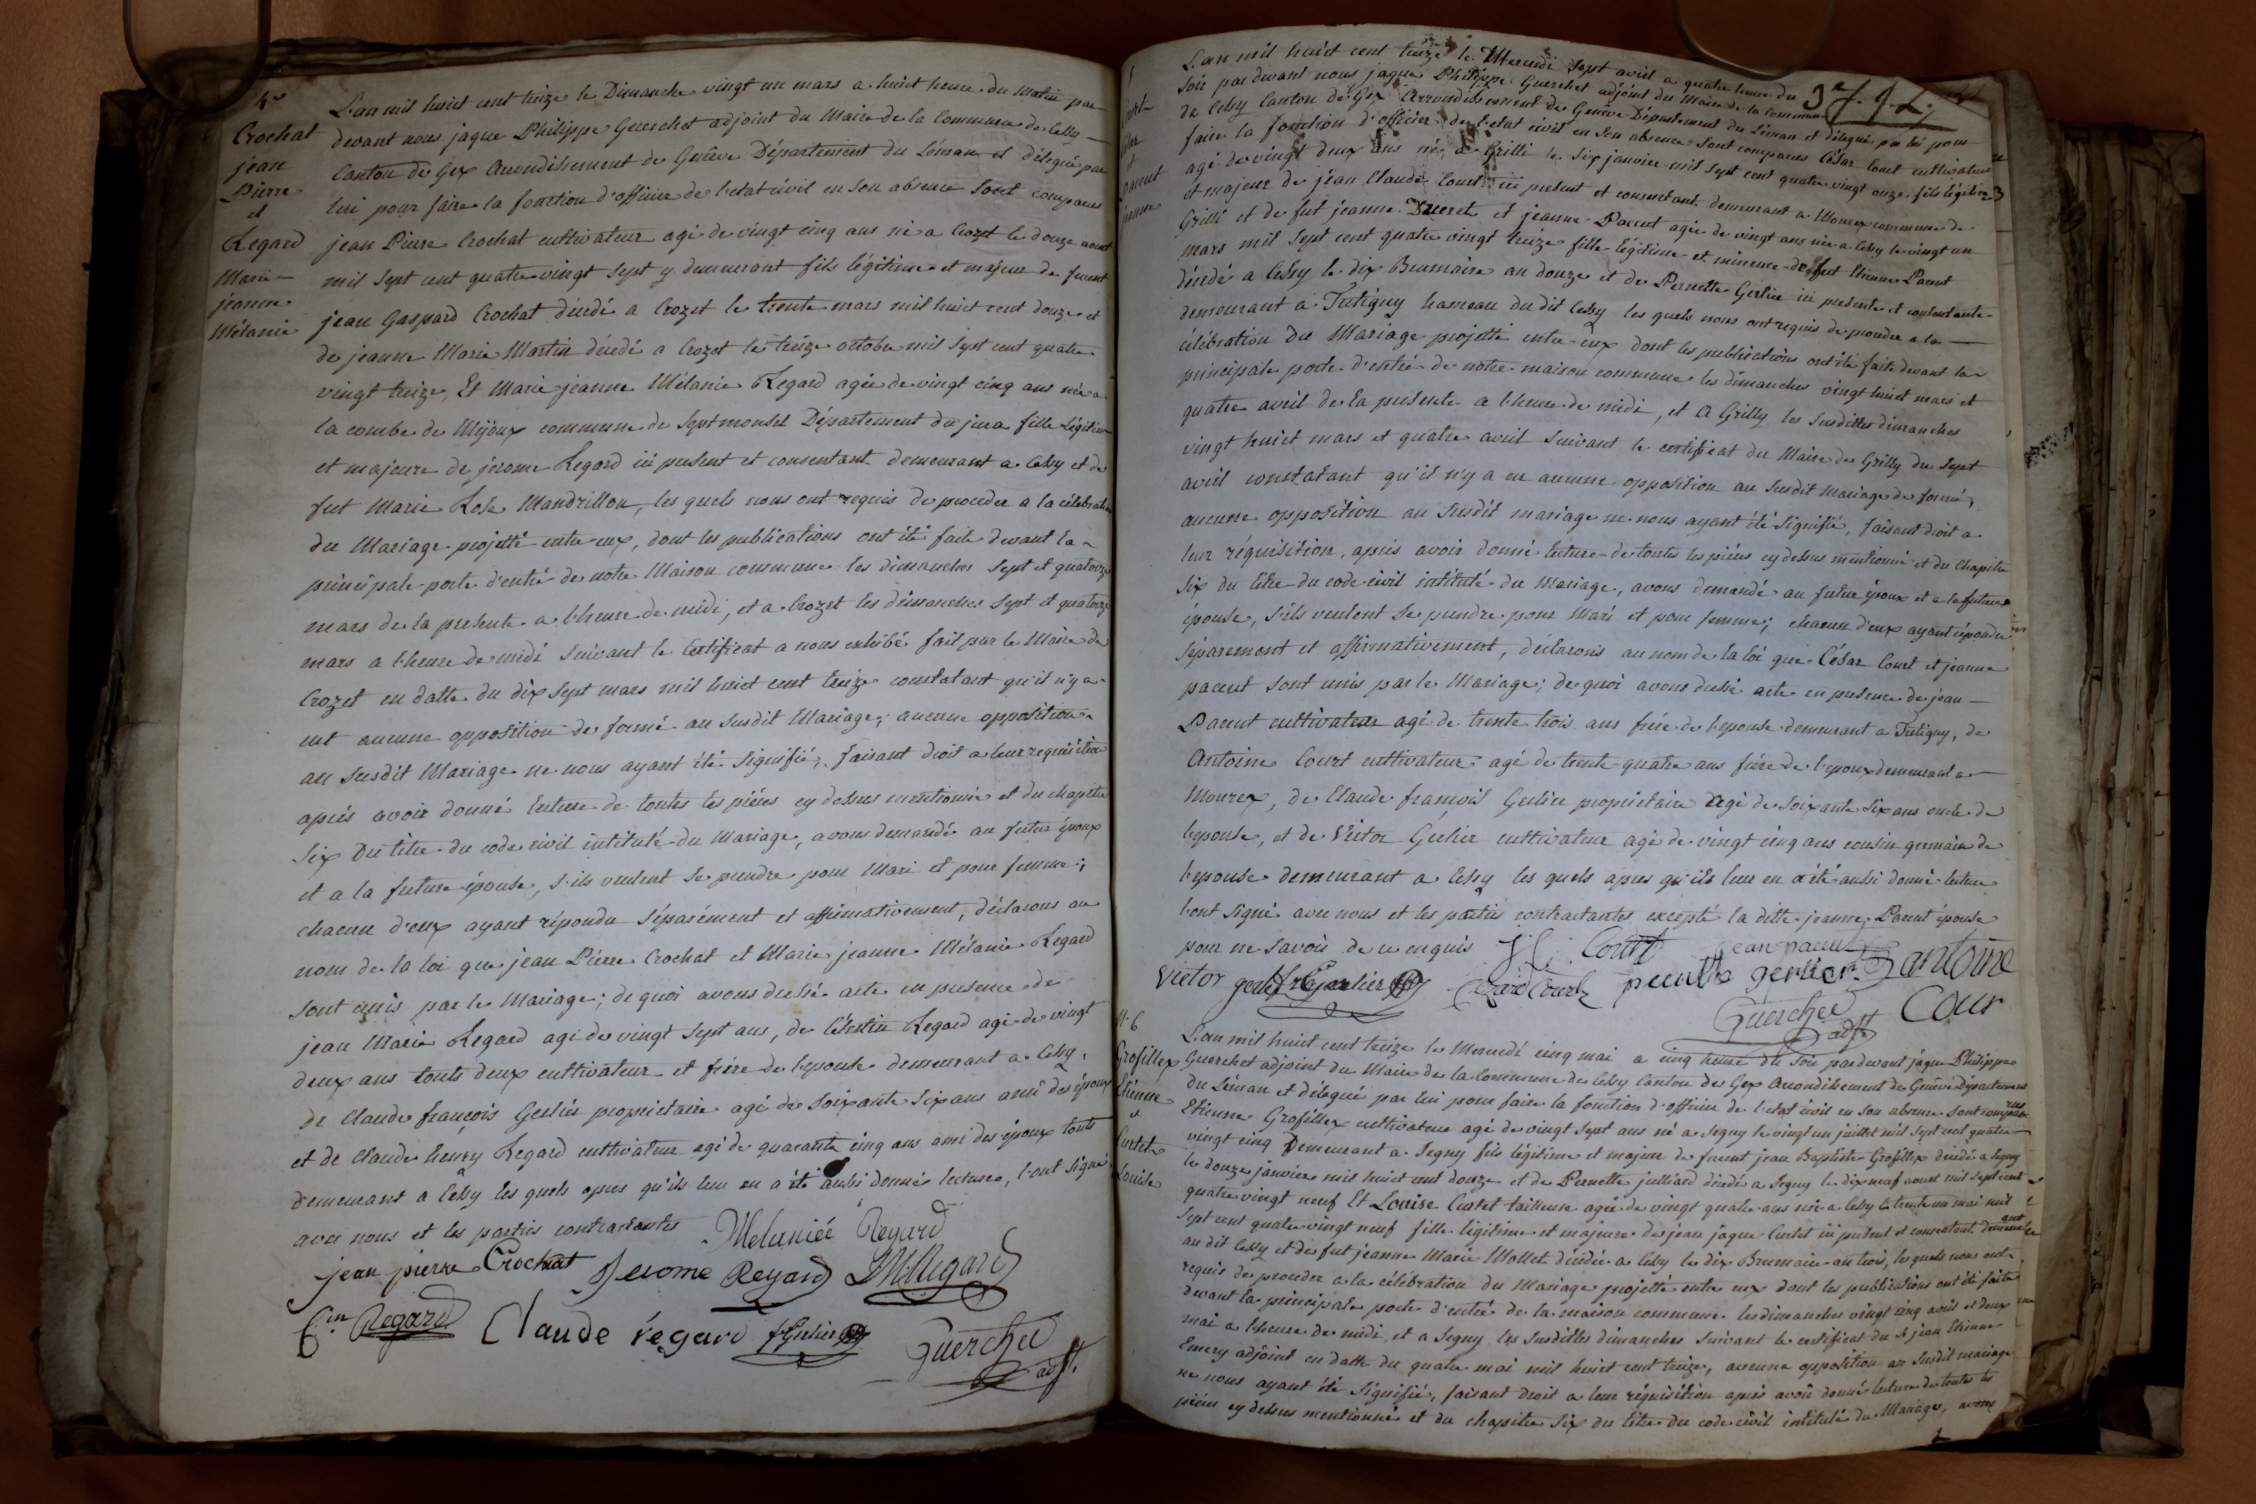 4e
Crochat
jean
Pierre
et
Regard
Marie
jeanne
Mélanie
L'an mil huict cent treize le Dimanche vingt un mars a huict heure du matin par
devant nous jaque Philippe Guerchet adjoint du Maire de la Commune de Cessy
Canton de Gex Arrondissement de Genève Département du Léman et délégué par
lui pour faire la fonction d'officier de l'etat civil en son absence sont comparus
jean Pierre Crochat cultivateur agé de vingt cinq ans né a Crozet le douze aout
mil sept cent quatre vingt sept y demeurant fils légitime et majeur de furent
jean Gaspard Crochat décédé a Crozet le trente mars mil huict cent douze et
de jeanne Marie Martin décédé a Crozet le treize octobre mil sept cent quatre
vingt treize, Et Marie jeanne Mélanie Regard agée de vingt cinq ans née a
la combe de Mijoux commune de Septmonsel Département du jura fille légitime
et majeure de jérome Regard ici present et consentant demeurant a Cessy et de
fut Marie Rose Mandrillon, les quels nous ont requis de proceder a la célébration
du Mariage projetté entre eux, dont les publications ont été faite devant la
principale porte d'entré de notre Maison commune les dimanches sept et quatorze
mars de la presente a l'heure de midi, et a Crozet les dimanches sept et quatorze
mars a l'heure de midi suivant le Certificat a nous exhibé fait par le Maire de
Crozet en datte du dix sept mars mil huict cent treize constatant qu'il n'y a
eut aucune opposition de formé au susdit Mariage; aucune opposition
au susdit Mariage ne nous ayant été signifié, faisant droit a leur requisition
apiés avoir donné lecture de toutes les piéces cy dessus mentionnée et du chapitre
six du titre du code civil intitulé du Mariage, avons demandé au futur époux
et a la future épouse, s'ils veulent se prendre pour Mari et pour femme;
chacun d'eux ayant répondu séparément et affirmativement, déclarons au
nom de la loi que jean Pierre Crochat et Marie jeanne Mélanie Regard
sont unis par le Mariage; de quoi avons dressé acte en presence de
jean Marie Regard agé de vingt sept ans, de Célestin Regard agé de vingt
deux ans touts deux cultivateur et frére de l'epouse demeurant a Cessy,
de Claude françois Gerlier proprietaire agé de soixante six ans ami des époux
et de Claude henry Regard cultivateur agé de quarante cinq ans ami des époux touts
demeurant a Cessy les quels apres qu'ils leur en a été aussi donné lecture, l'ont signé
avec nous et les parties contractantes Melaniée Regard
jean pierre Crochat Jerome Regard JM Regard
C.in Regard Claude regard f Gerlier Guerchet
adjt.
5
Court
et
Pacent
jeanne
3e f. J. L.
L'an mil huict cent treize le Mercredi sept avril a quatre heure du
soir par devant nous jaque Philippe Guerchet adjoint du Maire de la Commune
de Cessy Canton de Gex Arrondissement de Genève Département du Léman et délégué par lui pour
faire la fonction d'officier de l'etat civil en son absence sont comparus César Court cultivateur
agé de vingt deux ans né a Grilli le six janvier mil sept cent quatre vingt onze fils légitime
et majeur de jean Claude Court ici present et consentant demeurant a Mourex commune de
Grilli et de fut jeanne Ducret et jeanne Pacent agée de vingt ans née a Cessy le vingt un
mars mil sept cent quatre vingt treize fille légitime et mineure de fut Etienne Pacent
décédé a Cessy le dix Brumaire an douze et de Pernette Gerlier ici presente et contentante
demeurant a Tutigny hameau du dit Cessy les quels nous ont requis de proceder a la
célébration du Mariage projetté entre eux dont les publications ont été faite devant la
principale porte d'entré de notre maison commune les dimanches vingt huict mars et
quatre avril de la présente a l'heure de midi, et A Grilly les susdittes dimanches
vingt huict mars et quatre avril suivant le certificat du Maire de Grilly du sept
avril constatant qu'il n'y a eu aucune opposition au susdit Mariage de formé,
aucune opposition au susdit mariage ne nous ayant été signifié, faisant droit a
leur réquisition, apiés avoir donné lecture de toutes les piéces cy dessus mentionné et du chapitre
six du titre du code civil intitulé du Mariage, avons demandé au futur époux et a la future
épouse, s'ils veulent se prendre pour Mari et pour femme; chacun d'eux ayant répondu
séparement et affirmativement, déclarons au nom de la loi que César Court et jeanne
pacent sont unis par le Mariage; de quoi avons dressé acte en presence de jean
Pacent cultivateur agé de trente trois ans frére de l'epouse demeurant a Tutigny, de
Antoine Court cultivateur agé de trente quatre ans frére de l'epoux demeurant a
Mourex, de Claude françois Gerlier proprietaire agé de soixante six ans oncle de
l'epouse, et de Victor Gerlier cultivateur agé de vingt cinq ans cousin germain de
l'epouse demeurant a Cessy les quels apres qu'ils leur en a été aussi donné lecture
l'ont signé avec nous et les parties contractantes excepté la ditte jeanne Pacent épouse
pour ne savoir de ce enquis J. C. Court jean pacent
Victor gerlier f Gerlier Cezard Court pernette gerlier antoine
Guerchet Cour
adjt
N. 6
Grosfillex
Etienne
et
Curtet
Louise
L'an mil huict cent treize le Mercredi cinq mai a cinq heure du soir par devant jaque Philippe
Guerchet adjoint du Maire de la Commune de Cessy Canton de Gex Arrondissement de Genève Département
du Léman et délegué par lui pour faire la fonction d'officier de l'etat civil en son absence sont comparus
Etienne Grosfillex cultivateur agé de vingt sept ans né a Segny le vingt un juillet mil sept cent quatre
vingt cinq Demeurant a Segny fils légitime et majeur de furent jean Baptiste Grosfillex décédé a Segny
le douze janvier mil huict cent douze et de Pernette julliard décédé a Segny le dix neuf aoust mil sept cent
quatre vingt neuf Et Louise Curtet tailleuse agée de vingt quatre ans née a Cessy le trente un mai mil
sept cent quatre vingt neuf fille légitime et majeure de jean jaque Curtet ici present et consentant demeurant
au dit Cessy et de fut jeanne Marie Mollet décédée a Cessy le dix Brumaire an trois, les quels nous ont
requis de proceder a la célébration du Mariage projetté entre eux dont les publications ont été faite
devant la principale porte d'entré de la maison commune les dimanches vingt cinq avril et deux
mai a l'heure de midi, et a Segny les susdittes dimanches suivant le certificat du S. jean Etienne
Emery adjoint en datte du quatre mai mil huict cent treize, aucune opposition au susdit mariage
ne nous ayant été signifié, faisant droit a leur réquisition apiés avoir donné lecture de toutes les
piéces cy dessus mentionnée et du chapitre six du titre du code civil intitulé du Mariage, avons